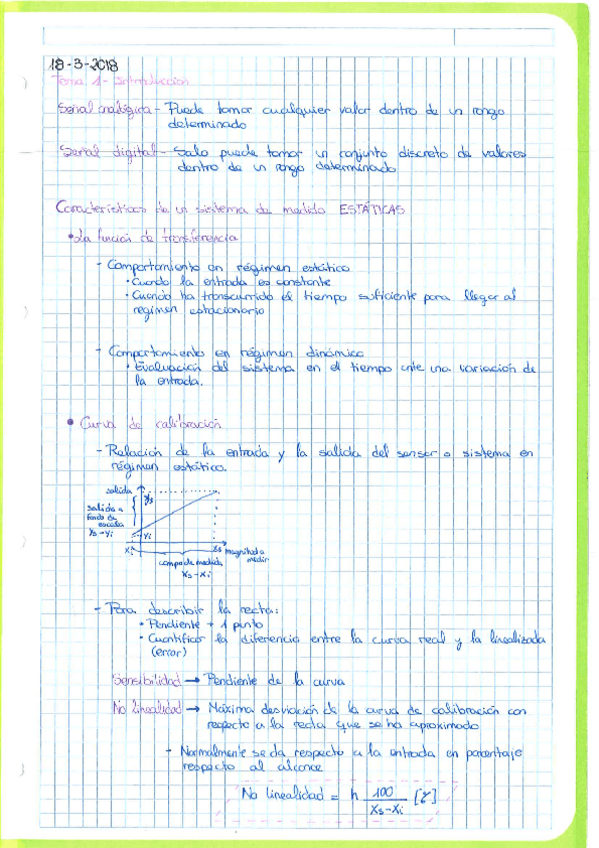 18-3-2018
Tema 1- Introducción
Señal analógica - Puede tomar cualquier valor dentro de un rango
determinado
Señal digital - Solo puede tomar un conjunto discreto de valores
dentro de un rango determinado
Características de un sistema de medida ESTÁTICAS
• La función de transferencia
- Comportamiento en régimen estático
• Cuando la entrada es constante
• Cuando ha transcurrido el tiempo suficiente para llegar al
régimen estacionario
- Comportamiento en régimen dinámico
• Evaluación del sistema en el tiempo ante una variación de
la entrada.
• Curva de calibración
- Relación de la entrada y la salida del sensor o sistema en
régimen estático.
salida
Ys
salida a
fondo de
escala
Ys - Yi
Yi
Xi
Xs
magnitud a
medir
campo de medida
Xs - Xi
- Para describir la recta:
• Pendiente + 1 punto
• Cuantificar la diferencia entre la curva real y la linealizada
(error)
Sensibilidad → Pendiente de la curva
No linealidad → Máxima desviación de la curva de calibración con
respecto a la recta que se ha aproximado
- Normalmente se da respecto a la entrada en porcentaje
respecto al alcance
No linealidad = h 100 / Xs - Xi [%]